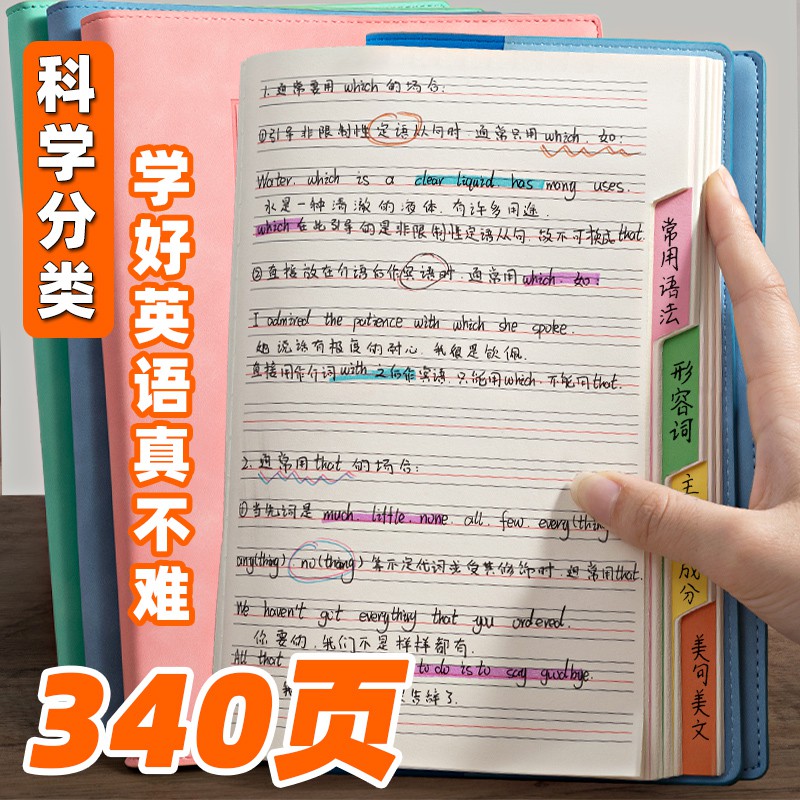 科学分类
学好英语真不难
1. 通常要用 which 的场合:
①引导非限制性定语从句时 通常只用 which. 如:
Water. which is a clear liquid. has many uses.
水是一种清澈的液体. 有许多用途.
which 在此引导的是非限制性定语从句. 故不可换成 that.
②直接放在介语后作宾语时. 通常用 which. 如:
I admired the patience with which she spoke.
她说话有极度的耐心. 我很是钦佩.
直接用作介词 with 之后作宾语. 只能用 which. 不能用 that.
2. 通常用 that 的场合:
①当先词是 much. little. none. all. few. every(thing
any(thing) no(thing) 等不定代词或受其修饰时. 通常用 that.
We haven't got everything that you ordered.
你要的. 我们不是样样都有.
All that to do is to say goodbye.
我 告辞了.
340页
常用语法
形容词
主 成分
美句美文